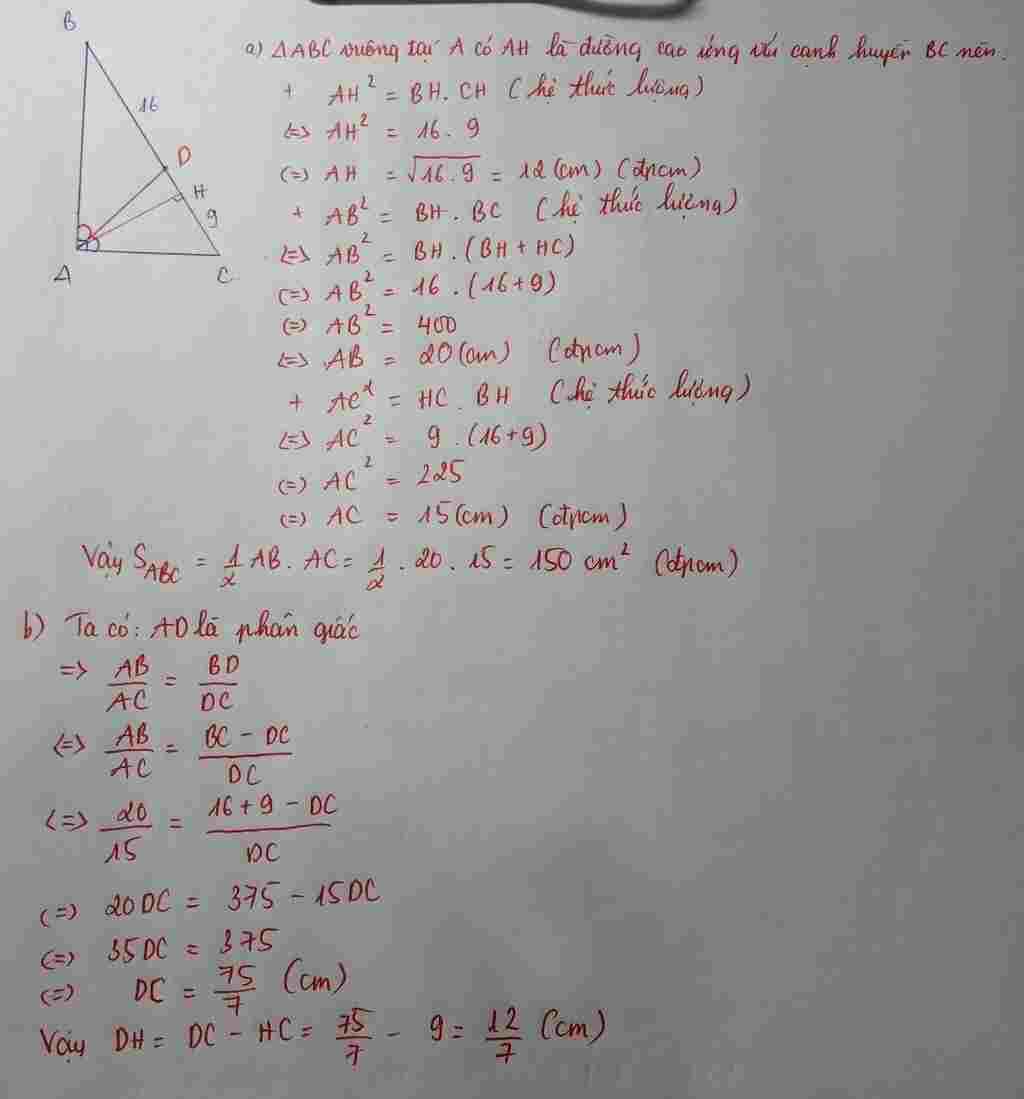 B
16
D
H
9
A
C
a) ΔABC vuông tại A có AH là đường cao ứng với cạnh huyền BC nên.
+ AH² = BH. CH (hệ thức lượng)
<=> AH² = 16 . 9
(=) AH = √16.9 = 12 (cm) (đpcm)
+ AB² = BH . BC (hệ thức lượng)
<=> AB² = BH . (BH + HC)
(=) AB² = 16 . (16+9)
(=) AB² = 400
<=> AB = 20 (cm) (đpcm)
+ AC² = HC . BH (hệ thức lượng)
<=> AC² = 9 . (16+9)
(=) AC² = 225
(=) AC = 15 (cm) (đpcm)
Vậy S_ABC = 1/2 AB. AC = 1/2 . 20 . 15 = 150 cm² (đpcm)
b) Ta có: AD là phân giác
=> AB/AC = BD/DC
<=> AB/AC = (BC - DC)/DC
<=> 20/15 = (16+9 - DC)/DC
(=) 20DC = 375 - 15DC
(=) 35DC = 375
(=) DC = 75/7 (cm)
Vậy DH = DC - HC = 75/7 - 9 = 12/7 (cm)